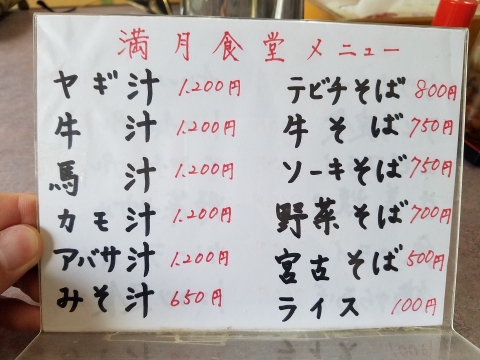 満月食堂メニュー
ヤギ汁 1.200円
牛汁 1.200円
馬汁 1.200円
カモ汁 1.200円
アバサ汁 1.200円
みそ汁 650円
テビチそば 800円
牛そば 750円
ソーキそば 750円
野菜そば 700円
宮古そば 500円
ライス 100円